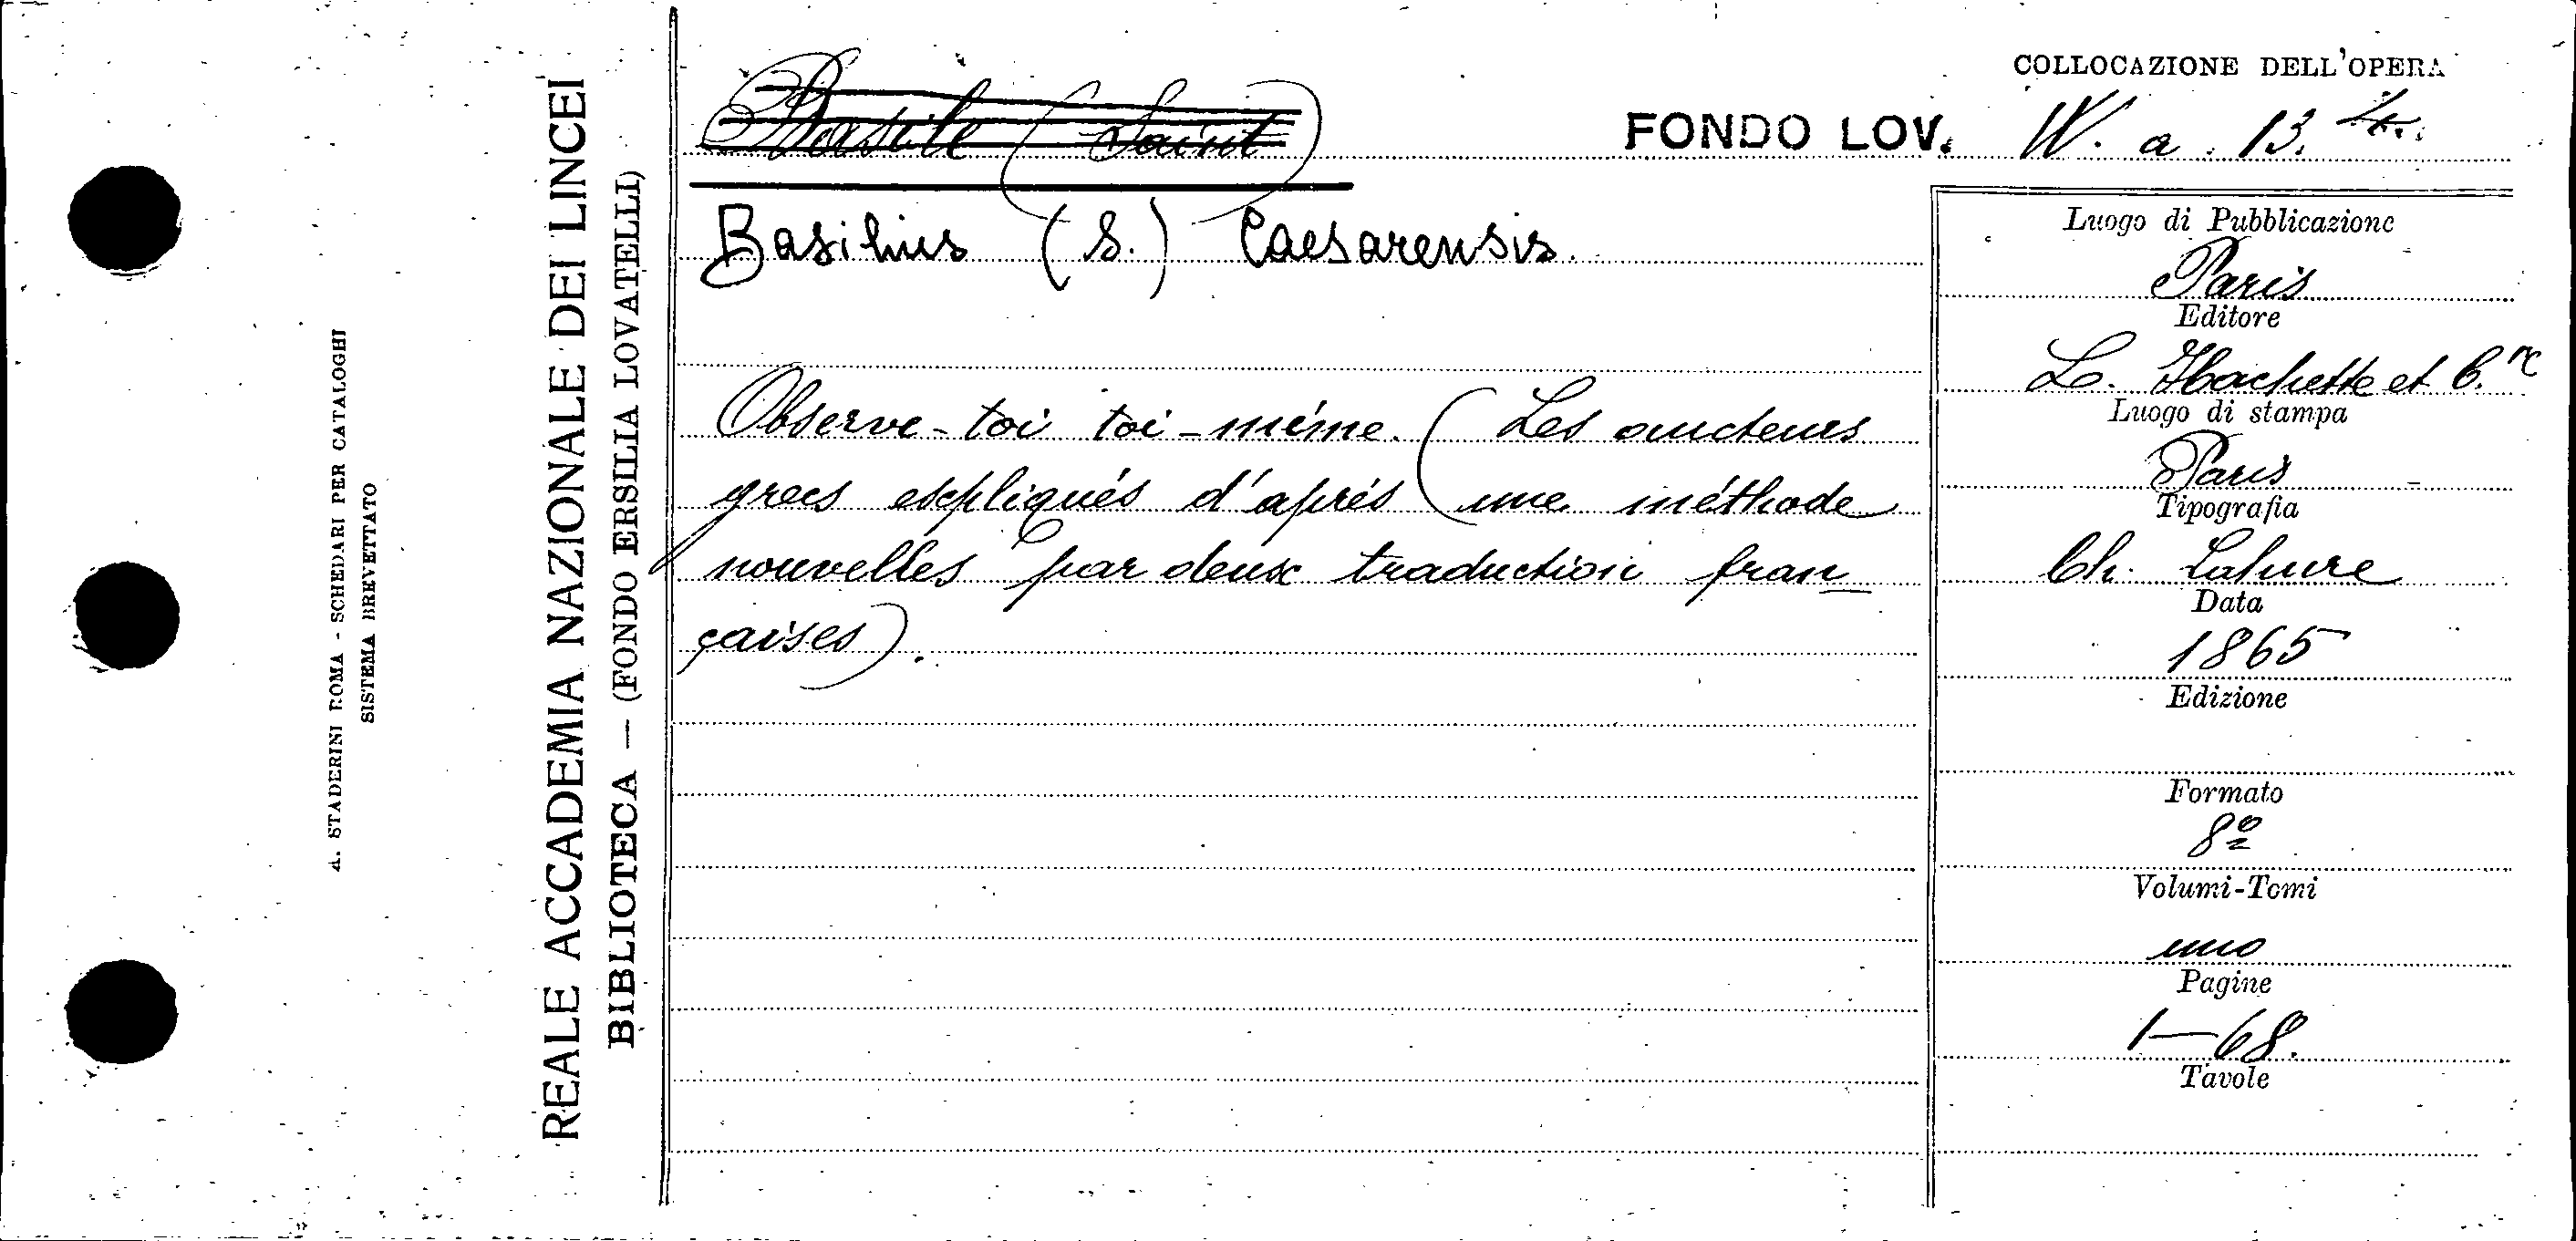 A. STADERINI ROMA - SCHEDARI PER CATALOGHI
SISTEMA BREVETTATO
REALE ACCADEMIA NAZIONALE DEI LINCEI
BIBLIOTECA — (FONDO ERSILIA LOVATELLI)
COLLOCAZIONE DELL'OPERA
Basile (Saint)
FONDO LOV. W. a. 13.
Basilius (S.) Caesarensis.
Observe-toi toi-même. (Les aucteurs
grecs espliqués d'aprés une méthode
nouvelles par deux traduction fran
çaises).
Luogo di Pubblicazione
Paris
Editore
L. Hachette et C.ie
Luogo di stampa
Paris
Tipografia
Ch. Lahure
Data
1865
Edizione
Formato
8º
Volumi-Tomi
uno
Pagine
1—68.
Tavole